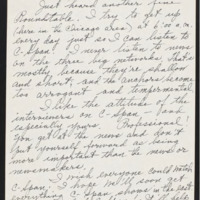 Just heard another fine
Roundtable. I try to get up
(here in the Chicago area) at 6:00 a.m.
every day just so I can listen to
C-Span! I never listen to news
on the three big networks, that's
mostly because they're shallow
and short, and the anchors become
too arrogant and tempermental.
I like the attitude of the
interviewers on C-Span — and
especially yours. Professional!
You get at the news and don't
put yourself forward as being
more important than the news or
newsmakers.
I wish everyone could watch
C-Span. I hope we'll soon get
everything C-Span shows in the past